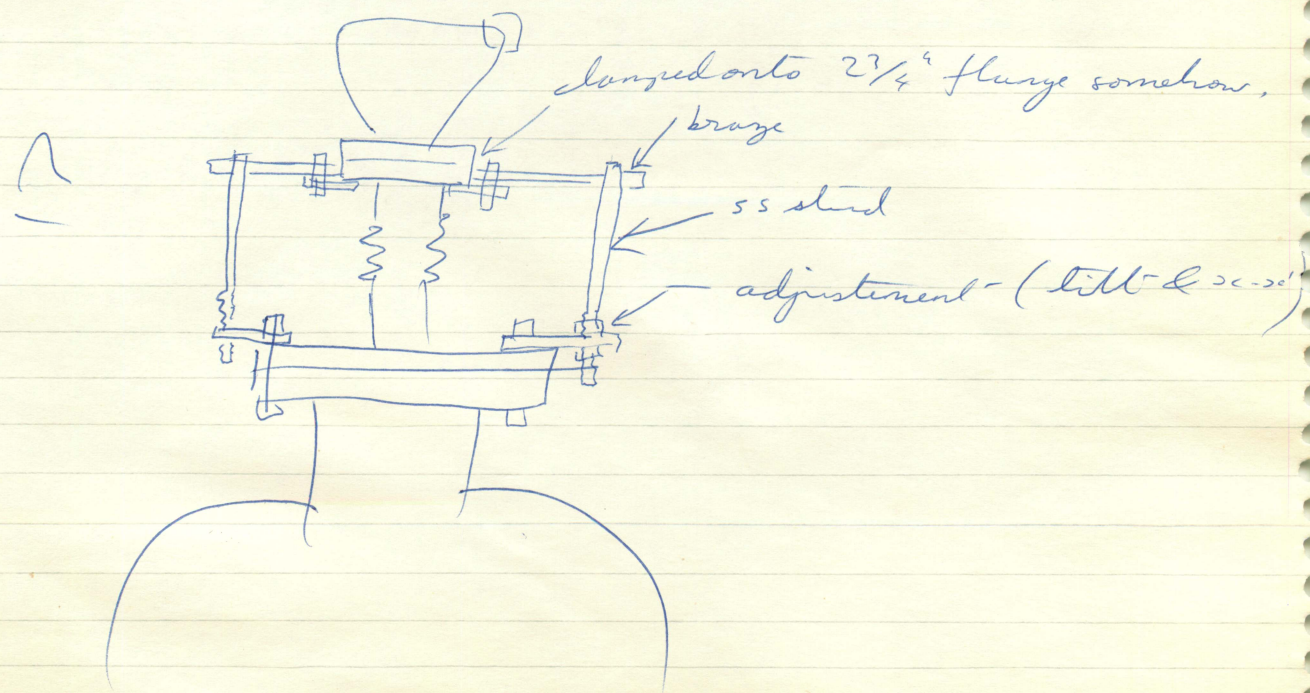 clamped onto 2 3/4" flange somehow.
braze
ss stud
adjustement - (tilt &